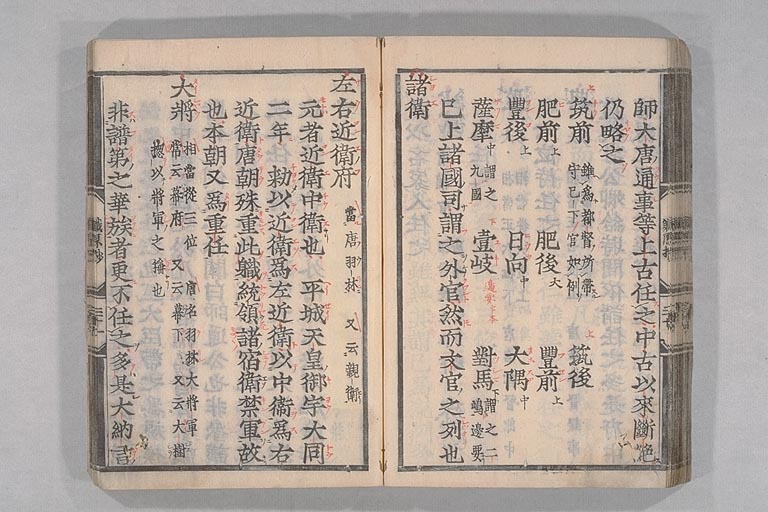 師大唐通事等上古任之中古以來斷絶
仍略之
筑前 雖為都督所帶守已下官如例 筑後 上
肥前 上 肥後 大 豐前 上
豐後 上 日向 中 大隅 中
薩摩 中 謂之九國 壹岐 對馬 下 謂之二嶋邊要
已上諸國司謂之外官然而文官之列也
諸衛
左右近衛府 當唐羽林 又云親衛
元者近衛中衛也平城天皇御宇大同
二年勅以近衛為左近衛以中衛為右
近衛唐朝殊重此職統領諸宿衛禁軍故
也本朝又為重任
大將 相當從三位 唐名羽林大將軍 常云幕府 又云幕下 又云大樹 惣以將軍之稱也
非譜第之華族者更不任之多是大納言